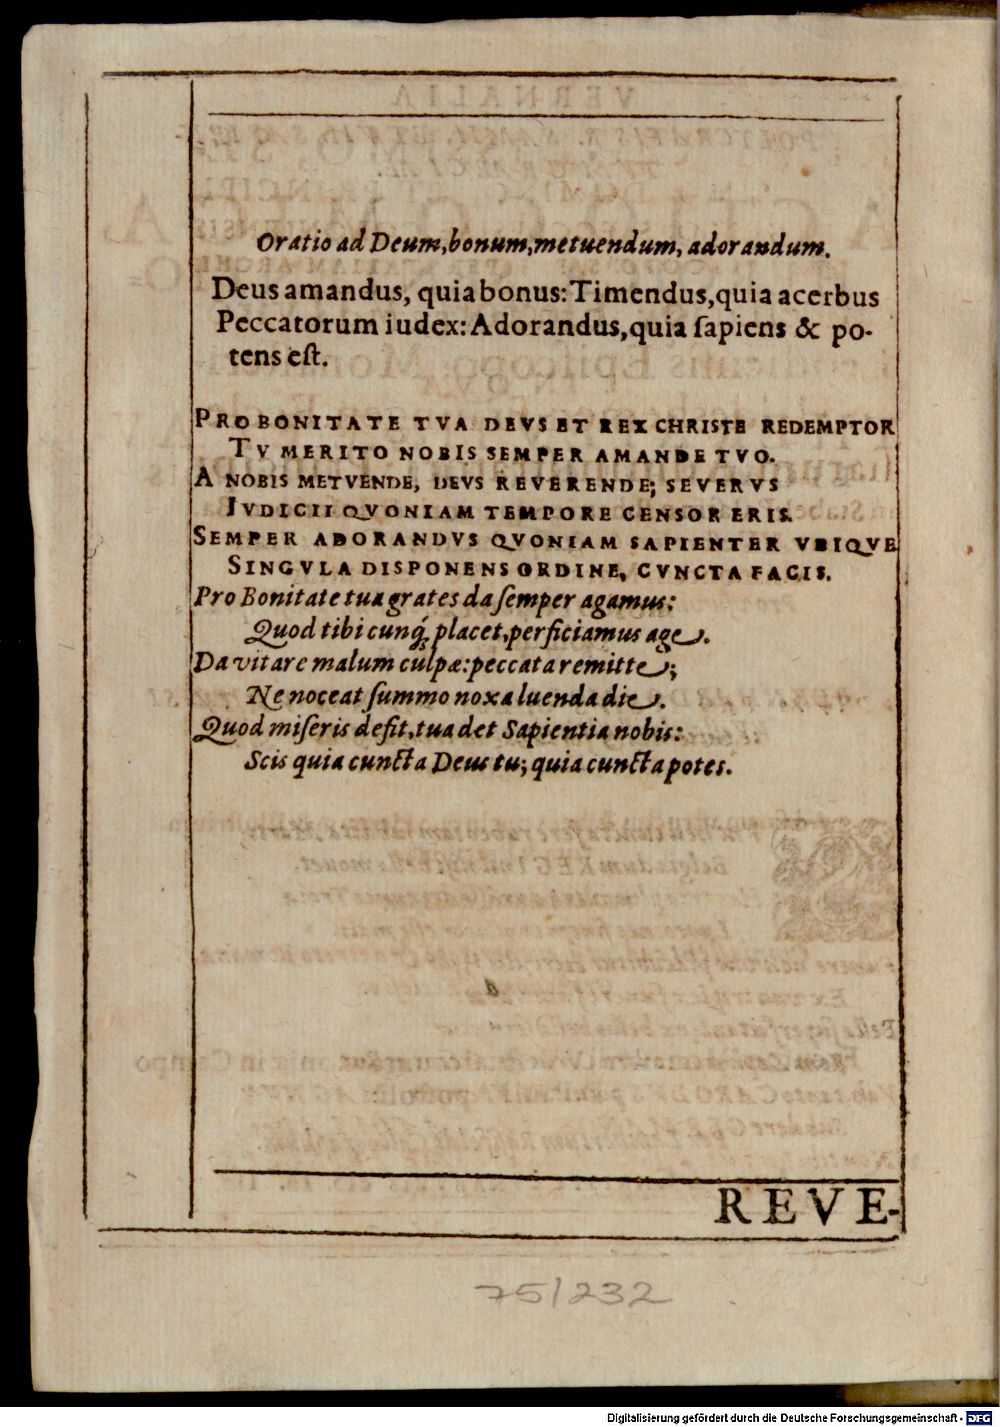 Oratio ad Deum, bonum, metuendum, adorandum.
Deus amandus, quia bonus: Timendus, quia acerbus
Peccatorum iudex: Adorandus, quia ſapiens & po-
tens eſt.
PRO BONITATE TVA DEVS ET REX CHRISTE REDEMPTOR
TV MERITO NOBIS SEMPER AMANDE TVO.
A NOBIS METVENDE, DEVS REVERENDE; SEVERVS
IVDICII QVONIAM TEMPORE CENSOR ERIS.
SEMPER ADORANDVS QVONIAM SAPIENTER VBIQVE
SINGVLA DISPONENS ORDINE, CVNCTA FACIS.
Pro Bonitate tua grates da ſemper agamus:
Quod tibi cunq́; placet, perficiamus age.
Da vitare malum culpæ: peccata remitte;
Ne noceat ſummo noxa luenda die.
Quod miſeris deſit, tua det Sapientia nobis:
Scis quia cuncta Deus tu; quia cuncta potes.
REVE-
75/232
Digitalisierung gefördert durch die Deutsche Forschungsgemeinschaft - DFG